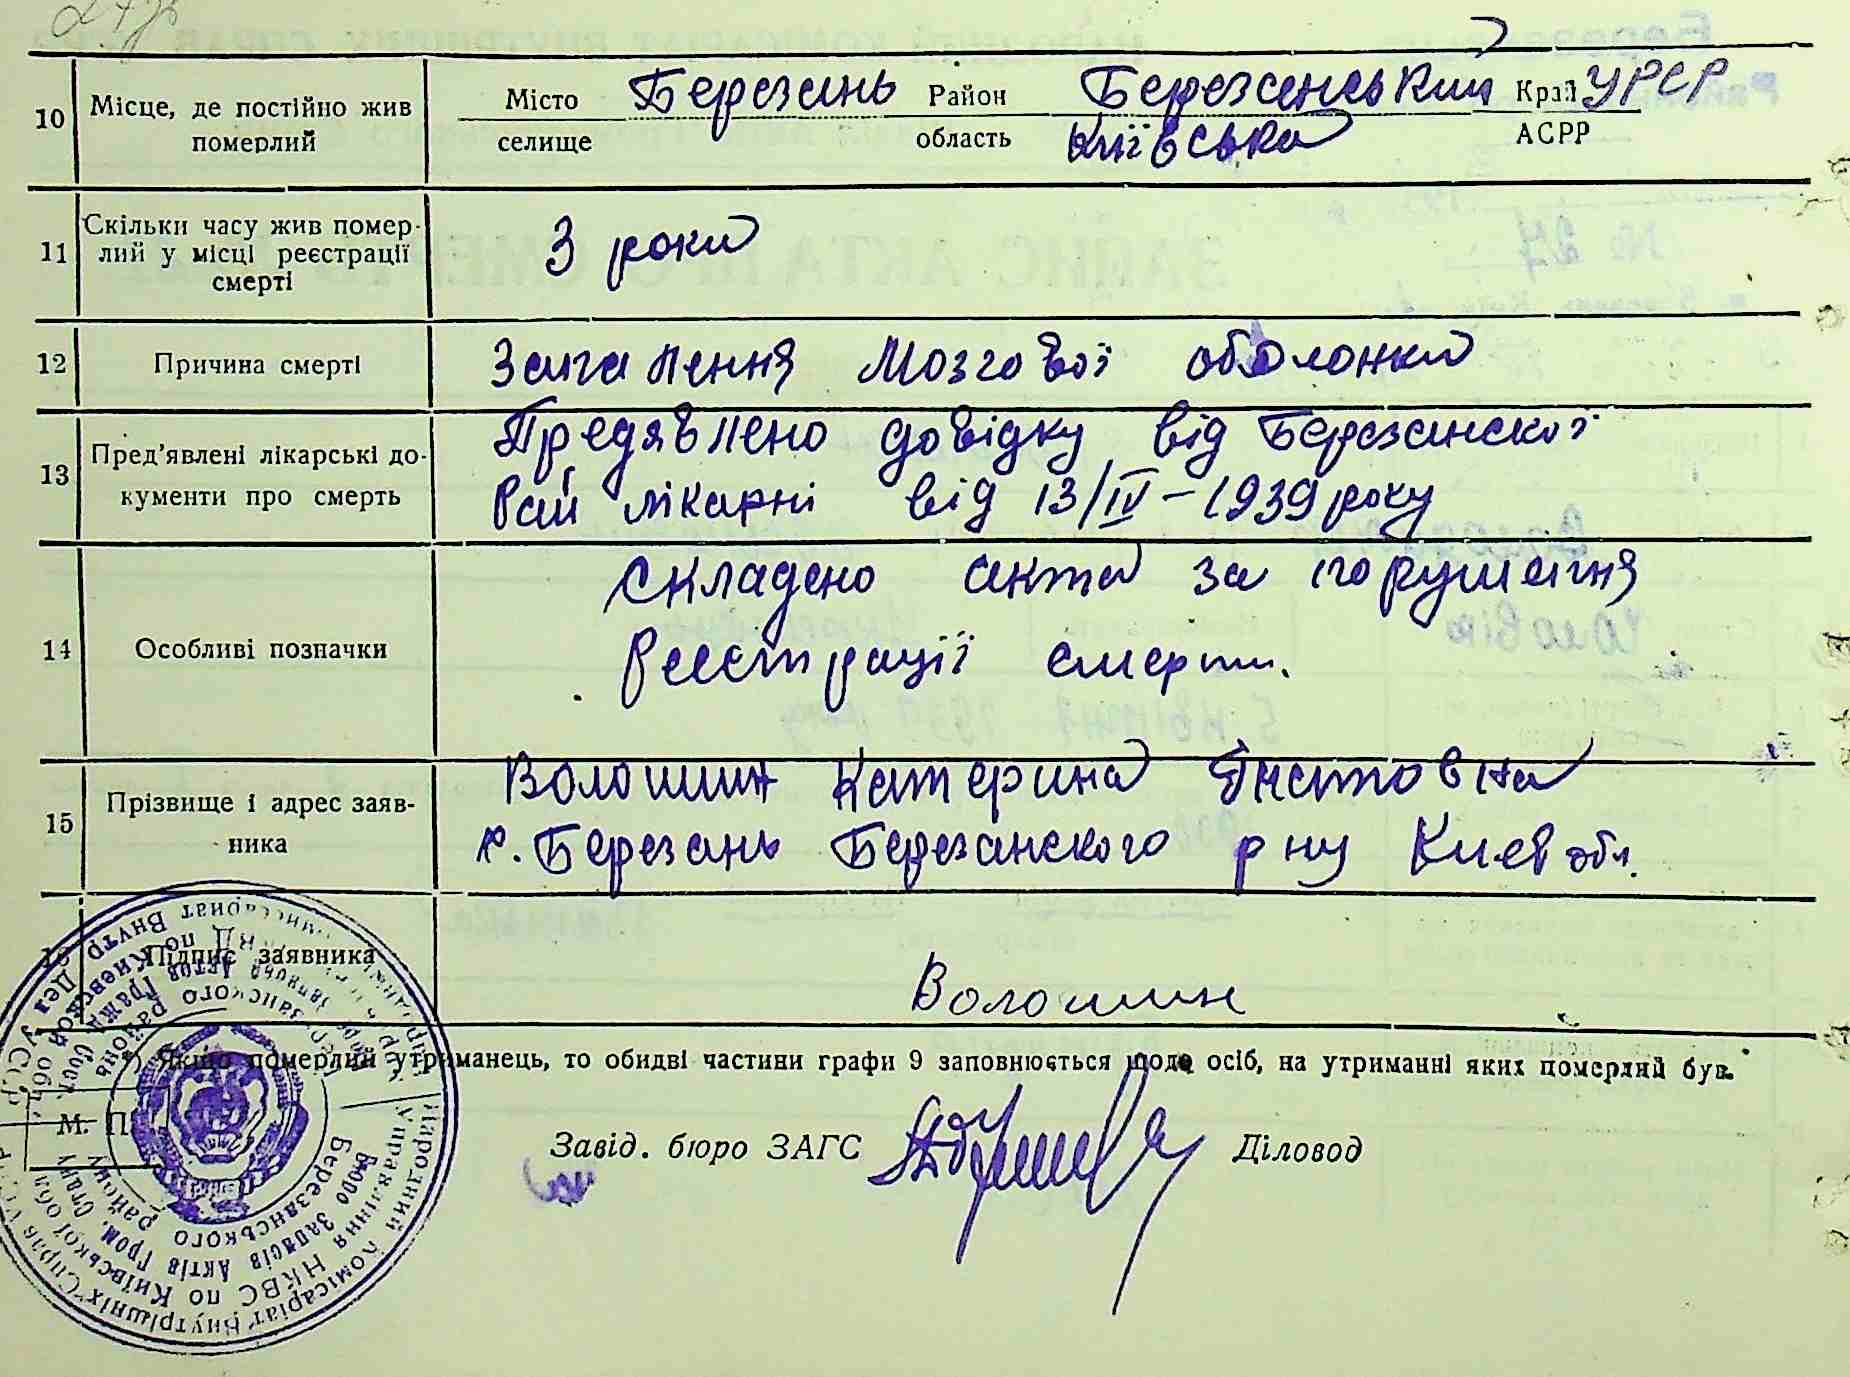 10 Місце, де постійно жив Місто Березань Район Березанський Край УРСР
померлий селище область Київська АСРР
11 Скільки часу жив помер-
лий у місці реєстрації 3 роки
смерті
12 Причина смерті Запалення Мозгової оболонки
13 Пред’явлені лікарські до- Предявлено довідку від Березанської
кументи про смерть Рай лікарні від 13/IV-1939 року
14 Особливі позначки Складено акта за порушення
Реєстрації смерти.
15 Прізвище і адрес заяв- Волошин Катерина Ігнатовна
ника с. Березань Березанского р ну Киев обл.
16 Підпис заявника Волошин
*) Якщо померлий утриманець, то обидві частини графи 9 заповнюється щодо осіб, на утриманні яких померлий був.
М. П.
Завід. бюро ЗАГС Діловод
Народний Комісаріат Внутрішніх Справ
Управління НКВС по Київській обл.
Бюро Записів Актів Гром. Стану
Березанського району